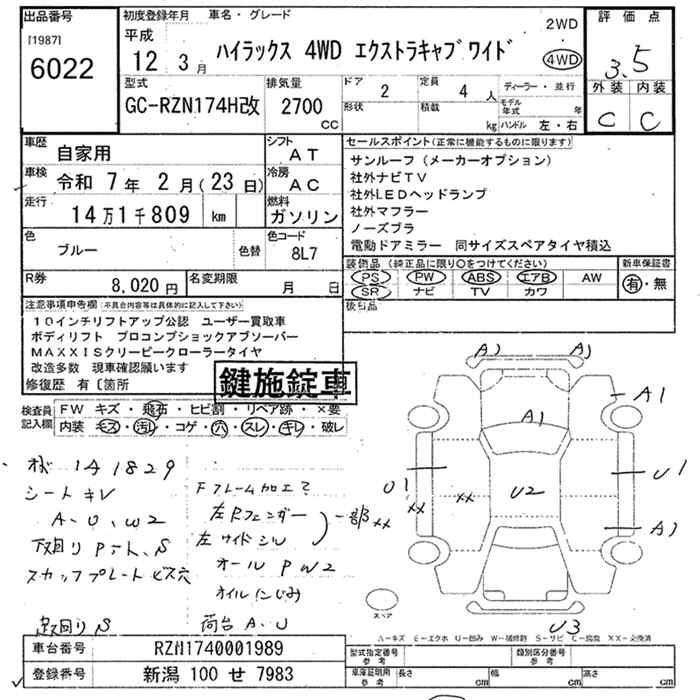 出品番号
[1987]
6022
初度登録年月 車名・グレード
平成
12年 3月
ハイラックス 4WD エクストラキャブワイド
2WD
4WD
評価点
3.5
外装 内装
C C
型式
GC-RZN174H改
排気量
2700 cc
ドア
2
形状
定員
4 人
積載
kg
ディーラー・並行
モデル年式 年
ハンドル 左・右
車歴
自家用
シフト
AT
車検
令和 7年 2月(23日)
冷房
AC
走行
14万1千809 km
燃料
ガソリン
色
ブルー
色替
色コード
8L7
R券
8,020円
名変期限
月 日
セールスポイント(正常に機能するものに限ります)
サンルーフ(メーカーオプション)
社外ナビTV
社外LEDヘッドランプ
社外マフラー
ノーズブラ
電動ドアミラー 同サイズスペアタイヤ積込
装備品(純正品に限り○をつけてください)
PS PW ABS エアB AW
SR ナビ TV カワ
新車保証書
有・無
後日品
注意事項申告欄(不具合内容等は具体的に記入して下さい)
10インチリフトアップ公認 ユーザー買取車
ボディリフト プロコンプショックアブソーバー
MAXXISクリーピークローラータイヤ
改造多数 現車確認願います
修復歴 有〔箇所
鍵施錠車
検査員記入欄
FW キズ・飛石・ヒビ割・リペア跡・×要
内装 キズ・汚レ・コゲ・穴・スレ・キレ・破レ
メ 141829
シートキレ
A.U.W2
下回りPテト.S
スカッフプレートビス穴
足回りS
Fフレーム加工?
左Rフェンダー
左サイドシル
一部××
オールPW2
オイルにじみ
荷台A.U
A1
A1
A1
A1
U1
××
××
U2
U1
A1
U3
スペア
A-キズ E-エクボ U-凹み W-補修跡 S-サビ C-腐蝕 XX-交換済
車台番号
RZN1740001989
登録番号
新潟 100 せ 7983
型式指定番号
参考
類別区分番号
参考
車庫証明用
参考
長さ cm
幅 cm
高さ cm